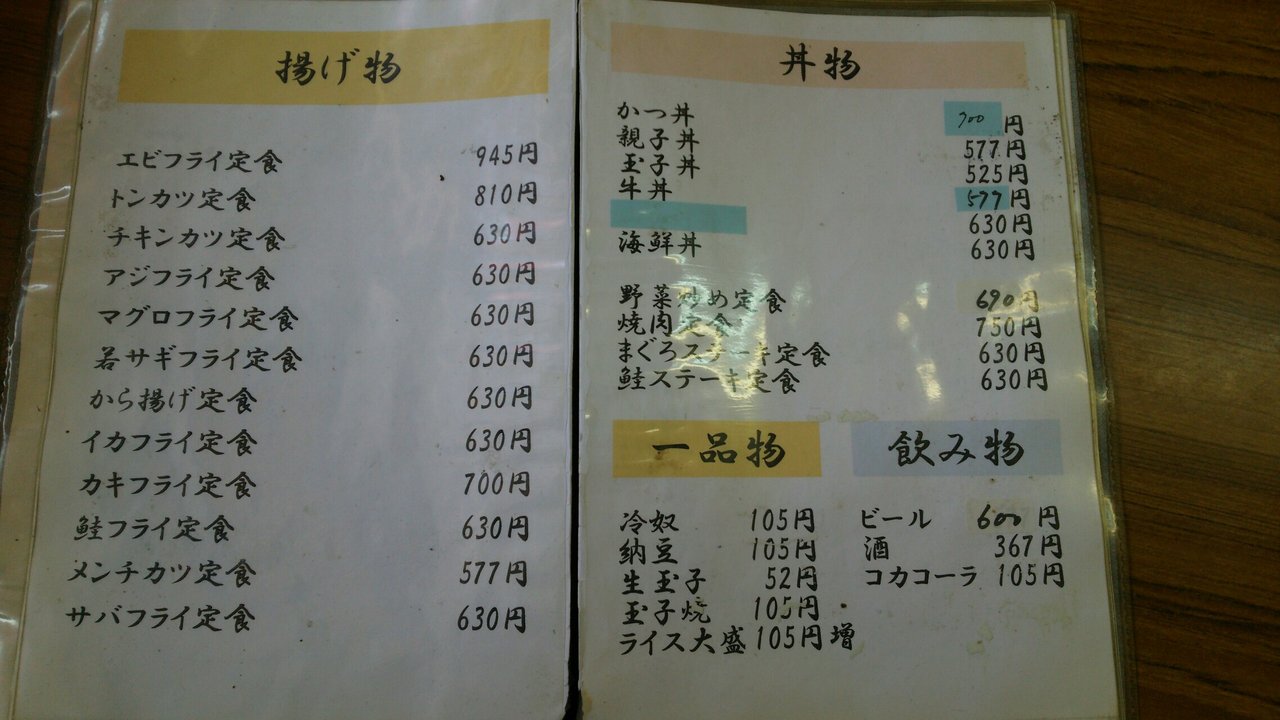 揚げ物
エビフライ定食 945円
トンカツ定食 810円
チキンカツ定食 630円
アジフライ定食 630円
マグロフライ定食 630円
若サギフライ定食 630円
から揚げ定食 630円
イカフライ定食 630円
カキフライ定食 700円
鮭フライ定食 630円
メンチカツ定食 577円
サバフライ定食 630円
丼物
かつ丼 700円
親子丼 577円
玉子丼 525円
牛丼 577円
630円
海鮮丼 630円
野菜炒め定食 690円
焼肉定食 750円
まぐろステーキ定食 630円
鮭ステーキ定食 630円
一品物
冷奴 105円
納豆 105円
生玉子 52円
玉子焼 105円
ライス大盛 105円増
飲み物
ビール 600円
酒 367円
コカコーラ 105円